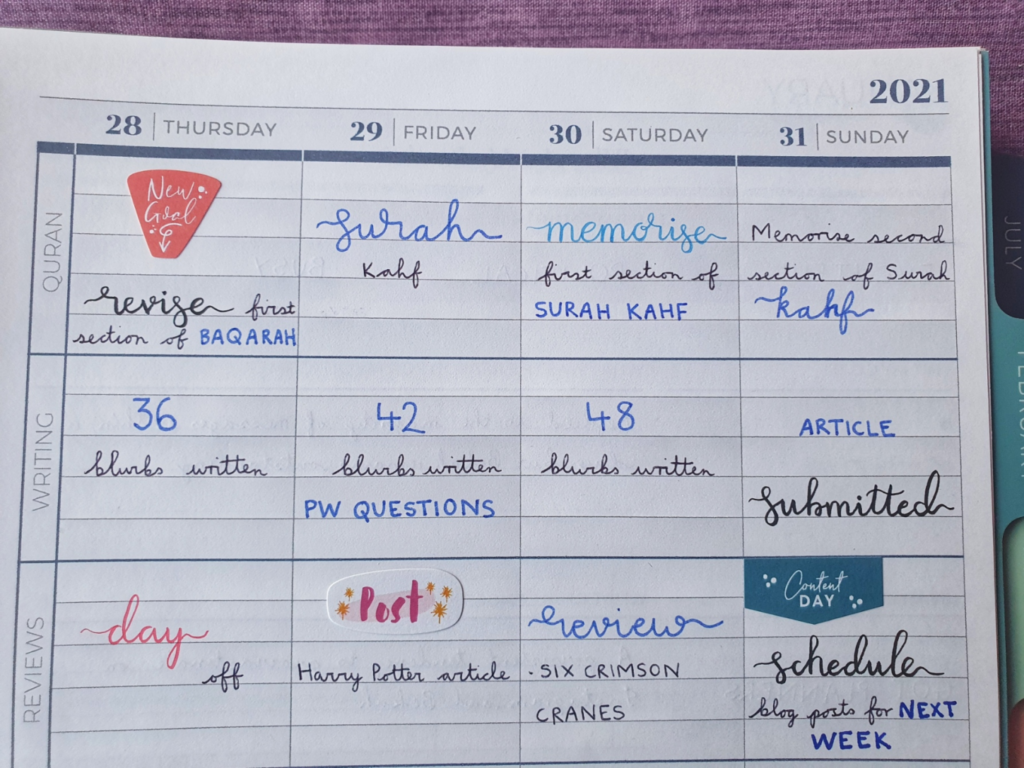 2021
28 | THURSDAY
29 | FRIDAY
30 | SATURDAY
31 | SUNDAY
QURAN
New
Goal
revise first
section of BAQARAH
surah
Kahf
memorise
first section of
SURAH KAHF
Memorise second
section of Surah
kahf
WRITING
36
blurbs written
42
blurbs written
PW QUESTIONS
48
blurbs written
ARTICLE
submitted
REVIEWS
day
off
Post
Harry Potter article
review
· SIX CRIMSON
CRANES
Content
DAY
schedule
blog posts for NEXT
WEEK
JULY
FEBRUARY